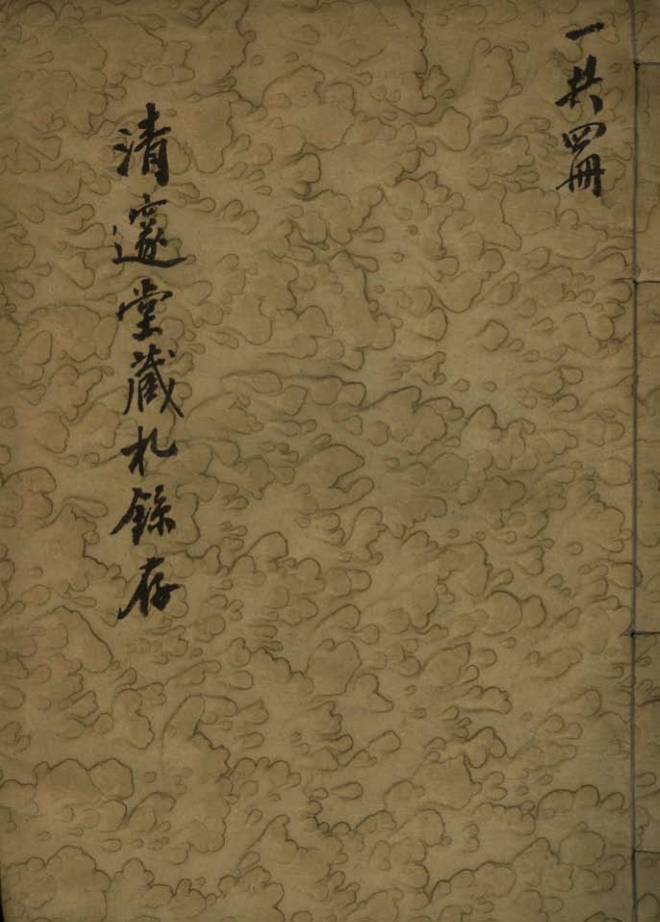 一共四冊
清邃堂藏札錄存